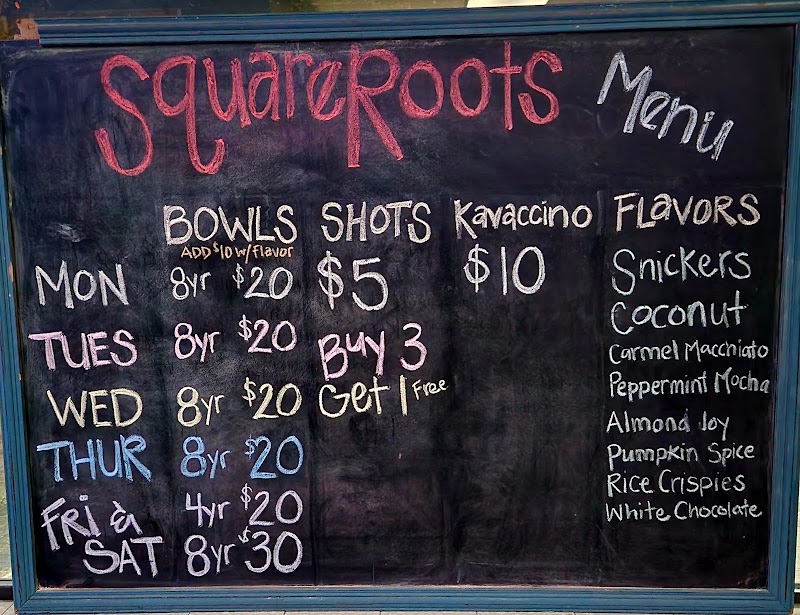 SquareRoots Menu
BOWLS SHOTS Kavaccino FLAVORS
ADD $10 w/flavor
MON 8yr $20 $5 $10 Snickers
Coconut
TUES 8yr $20 Buy 3 Carmel Macchiato
WED 8yr $20 Get 1 Free Peppermint Mocha
Almond Joy
THUR 8yr $20 Pumpkin Spice
Rice Crispies
FRI & 4yr $20 White Chocolate
SAT 8yr $30